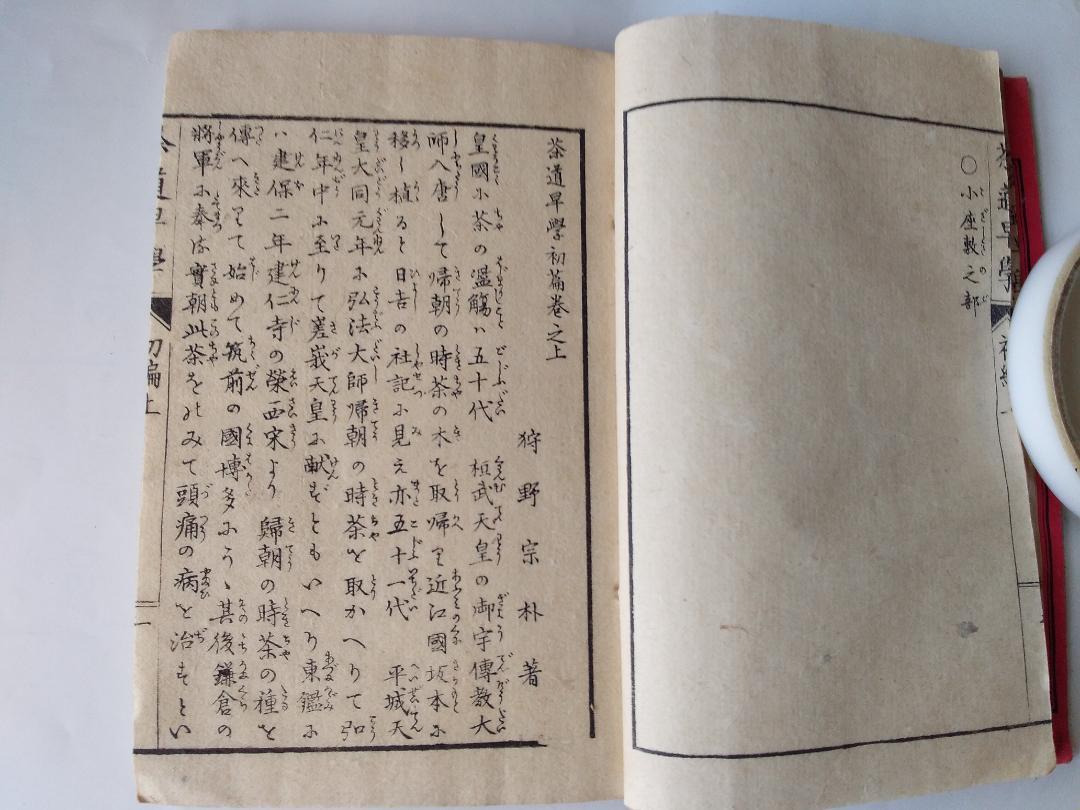 ○小座敷之部
茶道早學初篇卷之上
狩野宗朴著
皇國に茶の濫觴ハ五十代 桓武天皇の御宇傳教大
師入唐して帰朝の時茶の木を取帰り近江國坂本に
移し植ると日吉の社記に見え亦五十一代 平城天
皇大同元年に弘法大師帰朝の時茶を取かへりて弘
仁年中に至りて嵯峩天皇に献ずともいへり東鑑に
ハ建保二年建仁寺の榮西宋より歸朝の時茶の種を
傳へ來りて始めて筑前の國博多にうゝ其後鎌倉の
將軍に奉る實朝此茶をのみて頭痛の病を治すとい
茶道早學
初編上